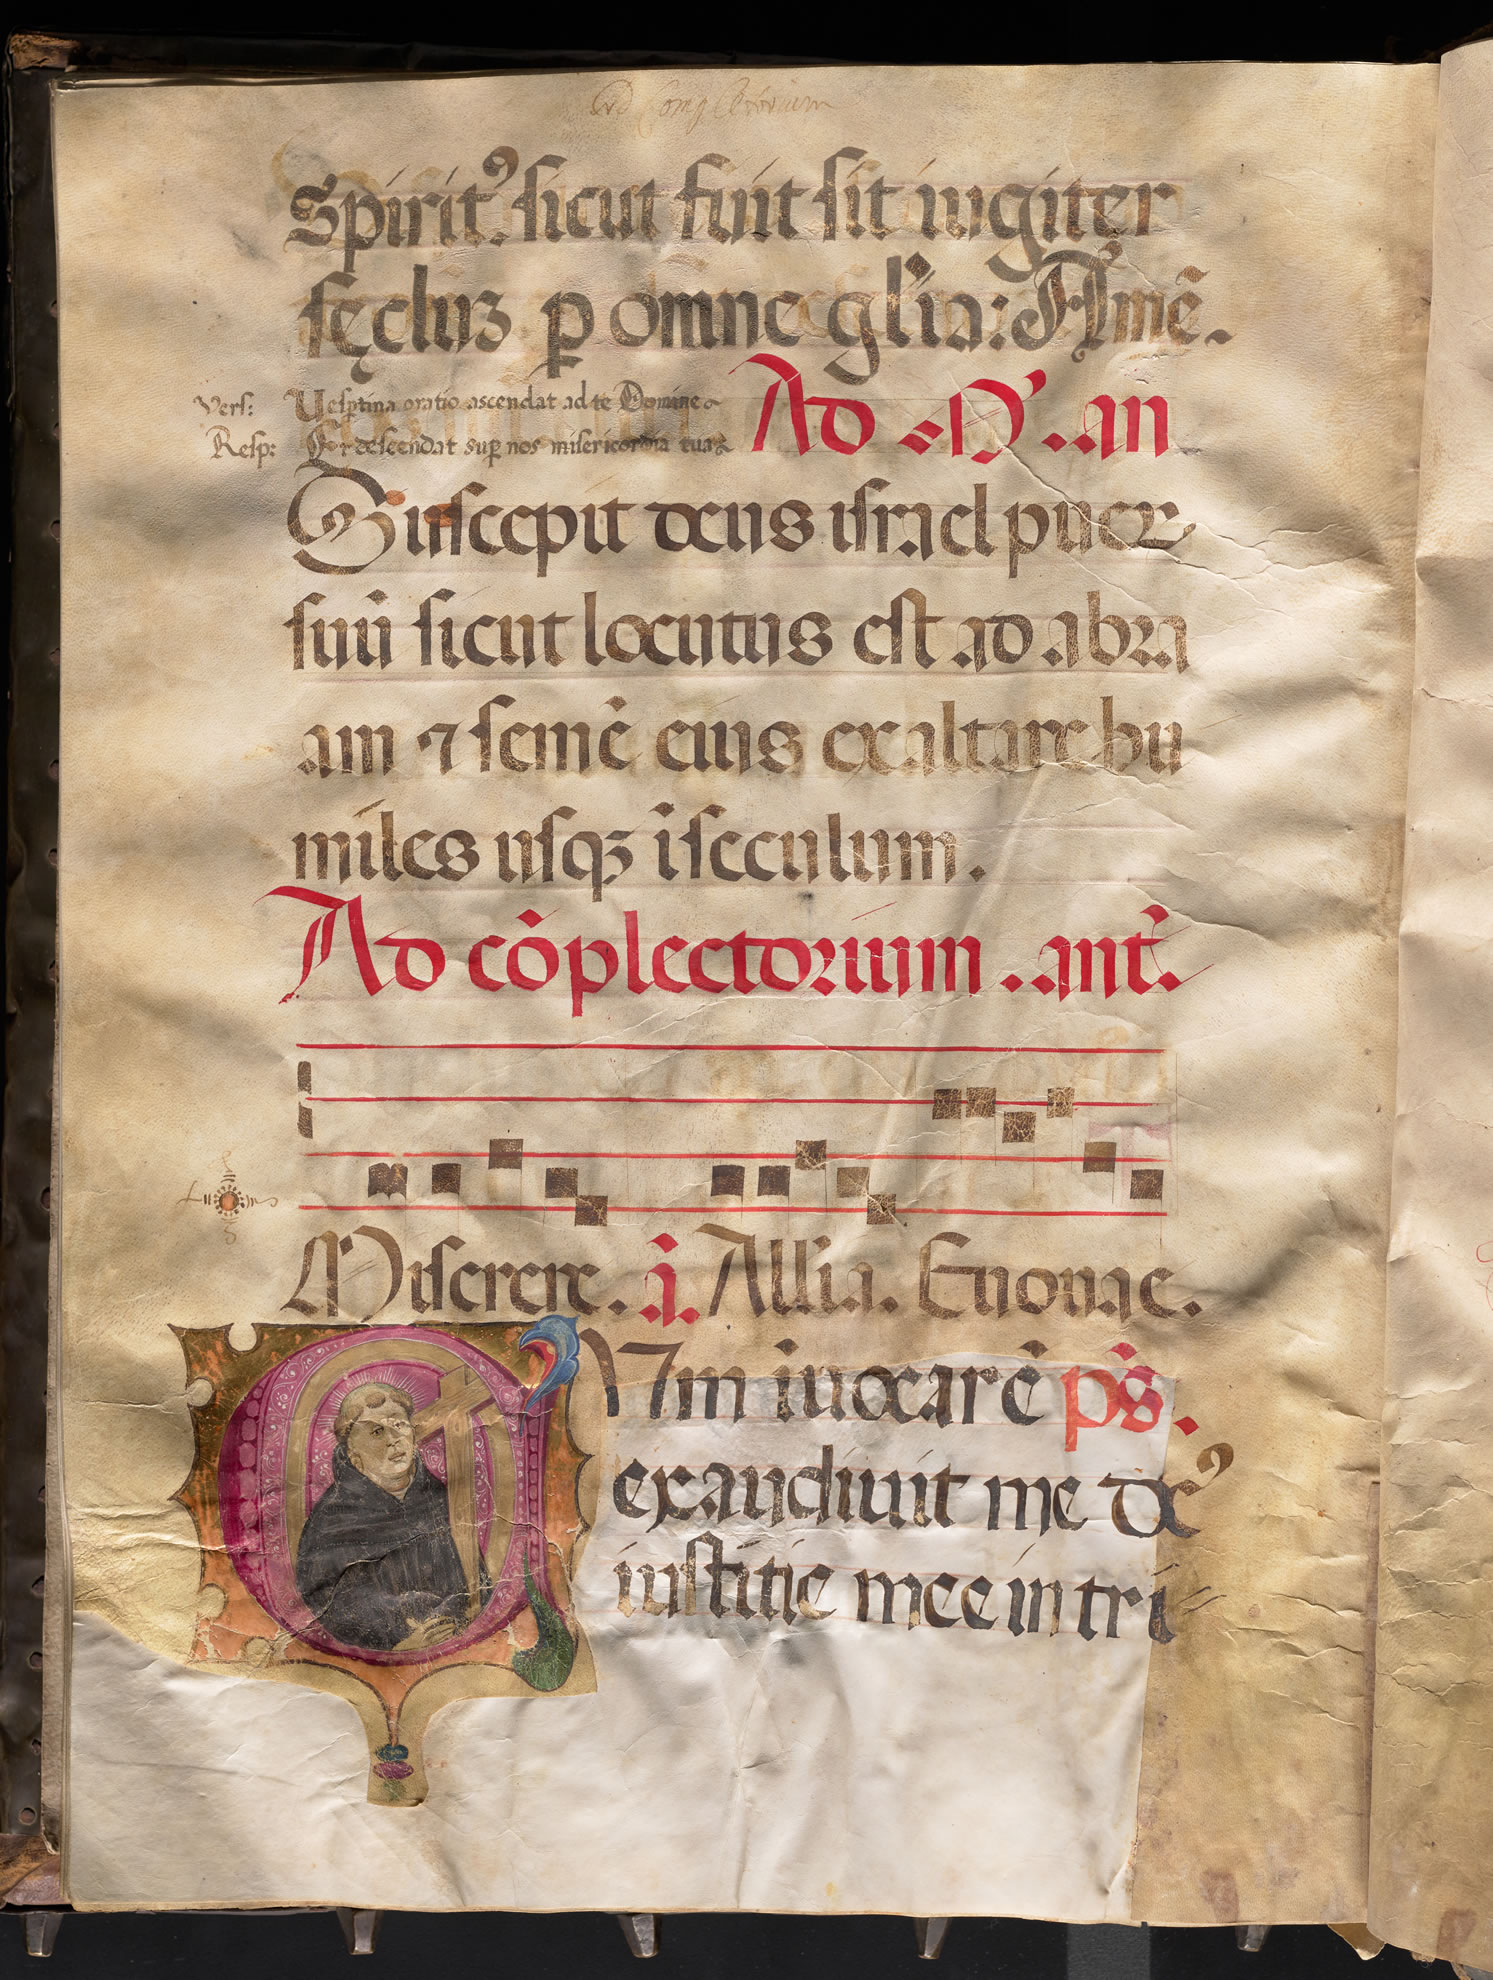 Ad Completorium
Spiritꝰ. sicut fuit sit iugiter
sęcluꝫ ꝑ omne gl'ia: Amē.
Vers: Vespertina oratio ascendat ad te Domine
Resp: Et descendat suꝑ nos misericordia tua
Ad M̃. an
Suscepit deus israel pueꝝ
suũ sicut locutus est ad abra
am ⁊ semẽ eius exaltare hu
miles usqꝫ ĩ seculum.
Ad cõplectorium. ant̃.
Miserere. a. Allĩa. Euouae.
CVm ĩuocarẽ ps̃.
exaudiuit me deꝰ
iustitie mee in tri